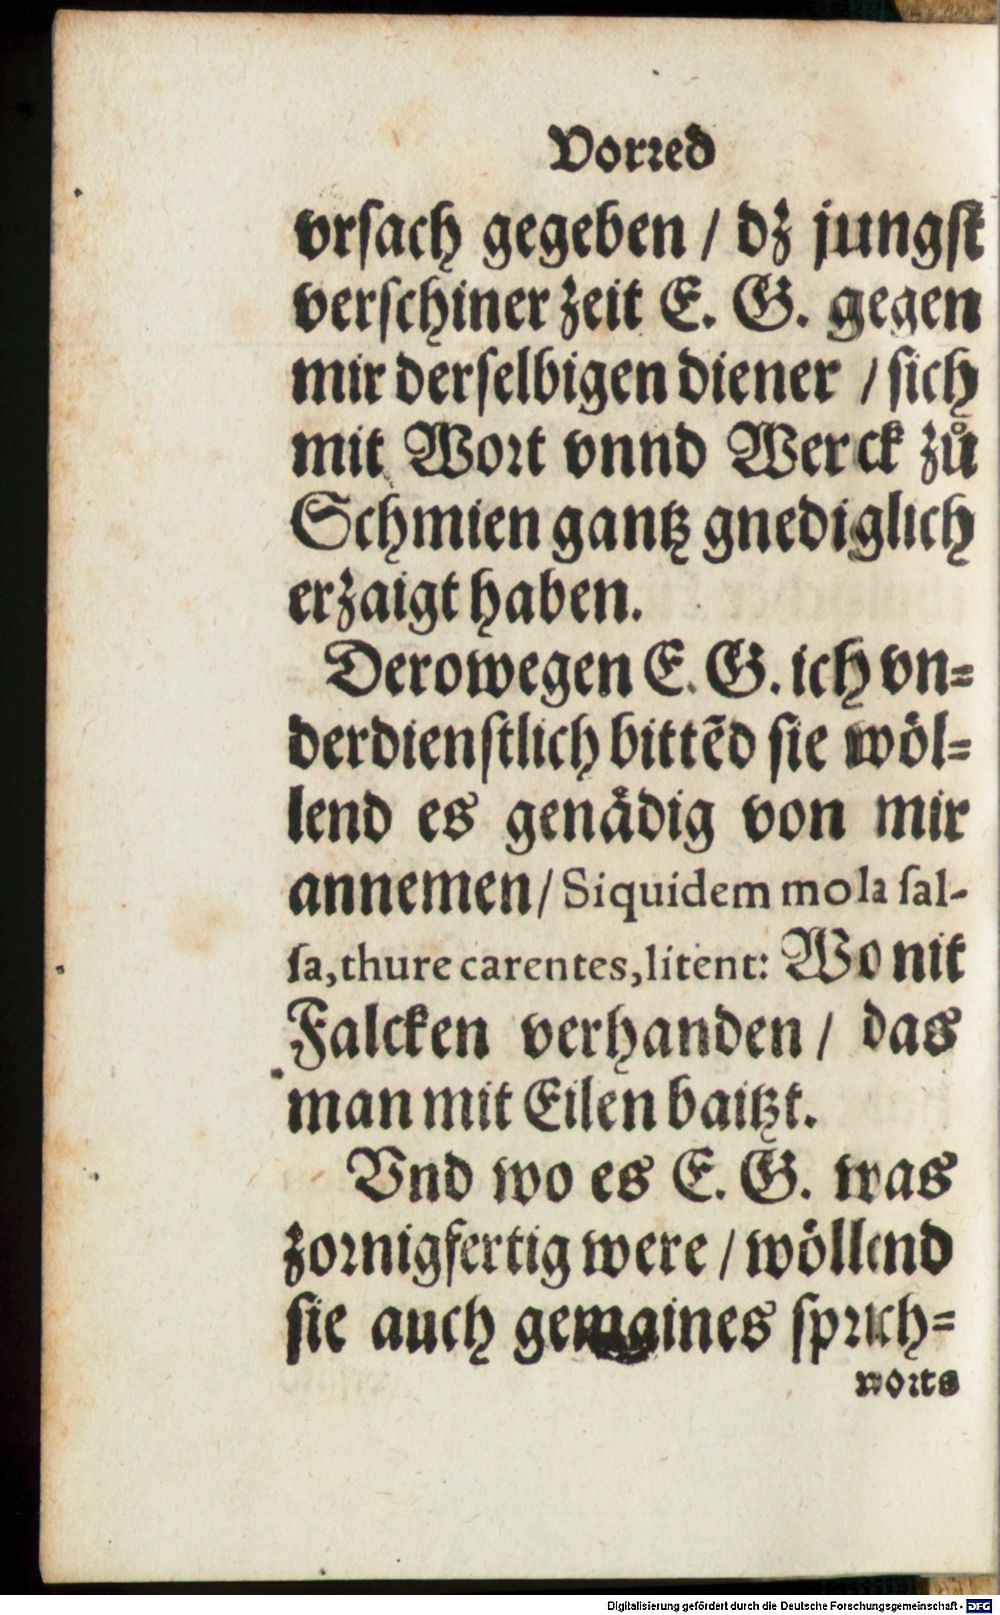 Vorꝛed
vrſach gegeben / dz jungſt
verſchiner zeit E. G. gegen
mir derſelbigen diener / ſich
mit Woꝛt vnnd Werck zuͦ
Schmien gantz gnediglich
erzaigt haben.
Derowegen E. G. ich vn⸗
derdienſtlich bittẽd ſie woͤl⸗
lend es genaͤdig von mir
annemen / Siquidem mola ſal-
ſa, thure carentes, litent: Wo nit
Falcken verhanden / das
man mit Eilen baitzt.
Vnd wo es E. G. was
zoꝛnigfertig were / woͤllend
ſie auch gemaines ſpꝛich⸗
woꝛts
Digitalisierung gefördert durch die Deutsche Forschungsgemeinschaft - DFG